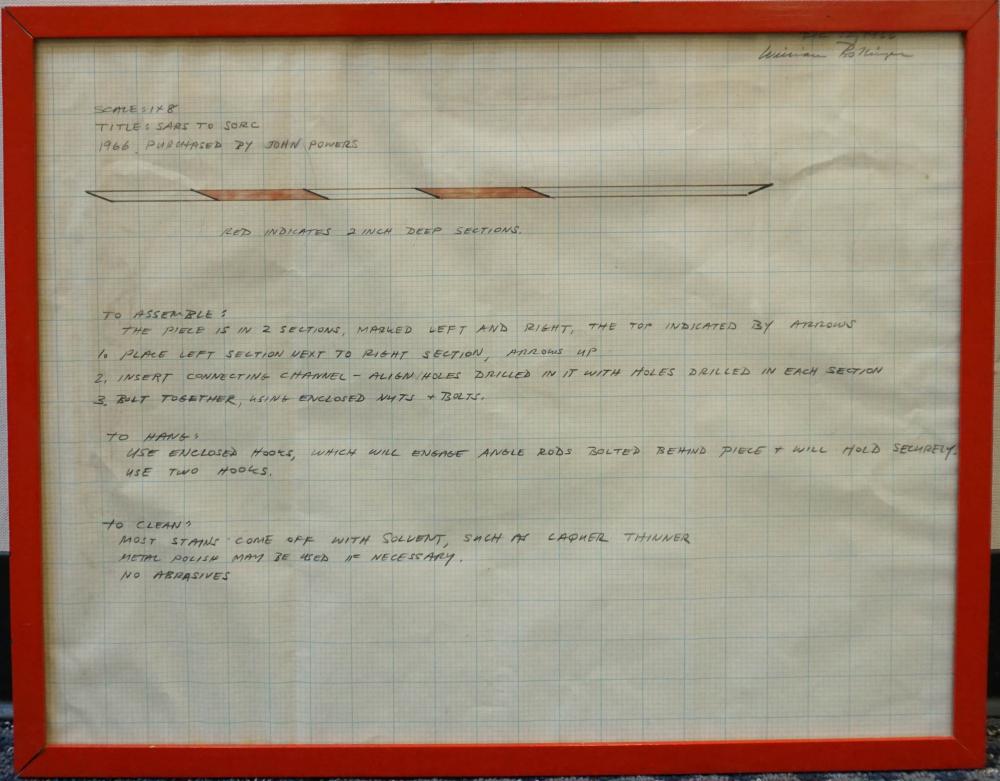 William Bollinger
SCALE: 1 X 8
TITLE: SARS TO SORC
1966 PURCHASED BY JOHN POWERS
RED INDICATES 2 INCH DEEP SECTIONS.
TO ASSEMBLE:
THE PIECE IS IN 2 SECTIONS, MARKED LEFT AND RIGHT, THE TOP INDICATED BY ARROWS
1. PLACE LEFT SECTION NEXT TO RIGHT SECTION, ARROWS UP
2. INSERT CONNECTING CHANNEL - ALIGN HOLES DRILLED IN IT WITH HOLES DRILLED IN EACH SECTION
3. BOLT TOGETHER, USING ENCLOSED NUTS + BOLTS.
TO HANG:
USE ENCLOSED HOOKS, WHICH WILL ENGAGE ANGLE RODS BOLTED BEHIND PIECE + WILL HOLD SECURELY.
USE TWO HOOKS.
TO CLEAN:
MOST STAINS COME OFF WITH SOLVENT, SUCH AS LAQUER THINNER
METAL POLISH MAY BE USED IF NECESSARY.
NO ABRASIVES